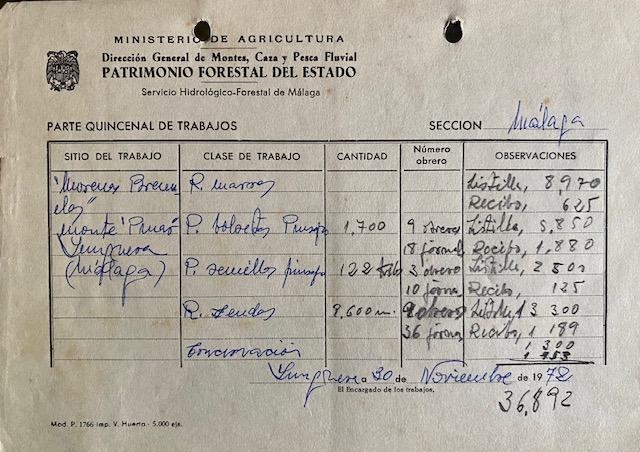 MINISTERIO DE AGRICULTURA
Dirección General de Montes, Caza y Pesca Fluvial
PATRIMONIO FORESTAL DEL ESTADO
Servicio Hidrológico-Forestal de Málaga
PARTE QUINCENAL DE TRABAJOS SECCION Málaga
SITIO DEL TRABAJO CLASE DE TRABAJO CANTIDAD Número obrero OBSERVACIONES
R. marras Listilla, 8,970
Recibo, 625
monte P. 1,700 9 obreros Listilla, 5,850
Yunquera 18 Recibo, 1,880
(Málaga) P. semillas 122 3 obrero Listilla, 2 800
10 Recibo, 125
R. sendas 9,600 m. 9 obreros 3 300
36 Recibo, 1 189
Conservación 1 300
Yunquera a 30 de Noviembre de 1972
El Encargado de los trabajos,
36,892
Mod. P. 1766-Imp. V. Huerta.- 5.000 ejs.